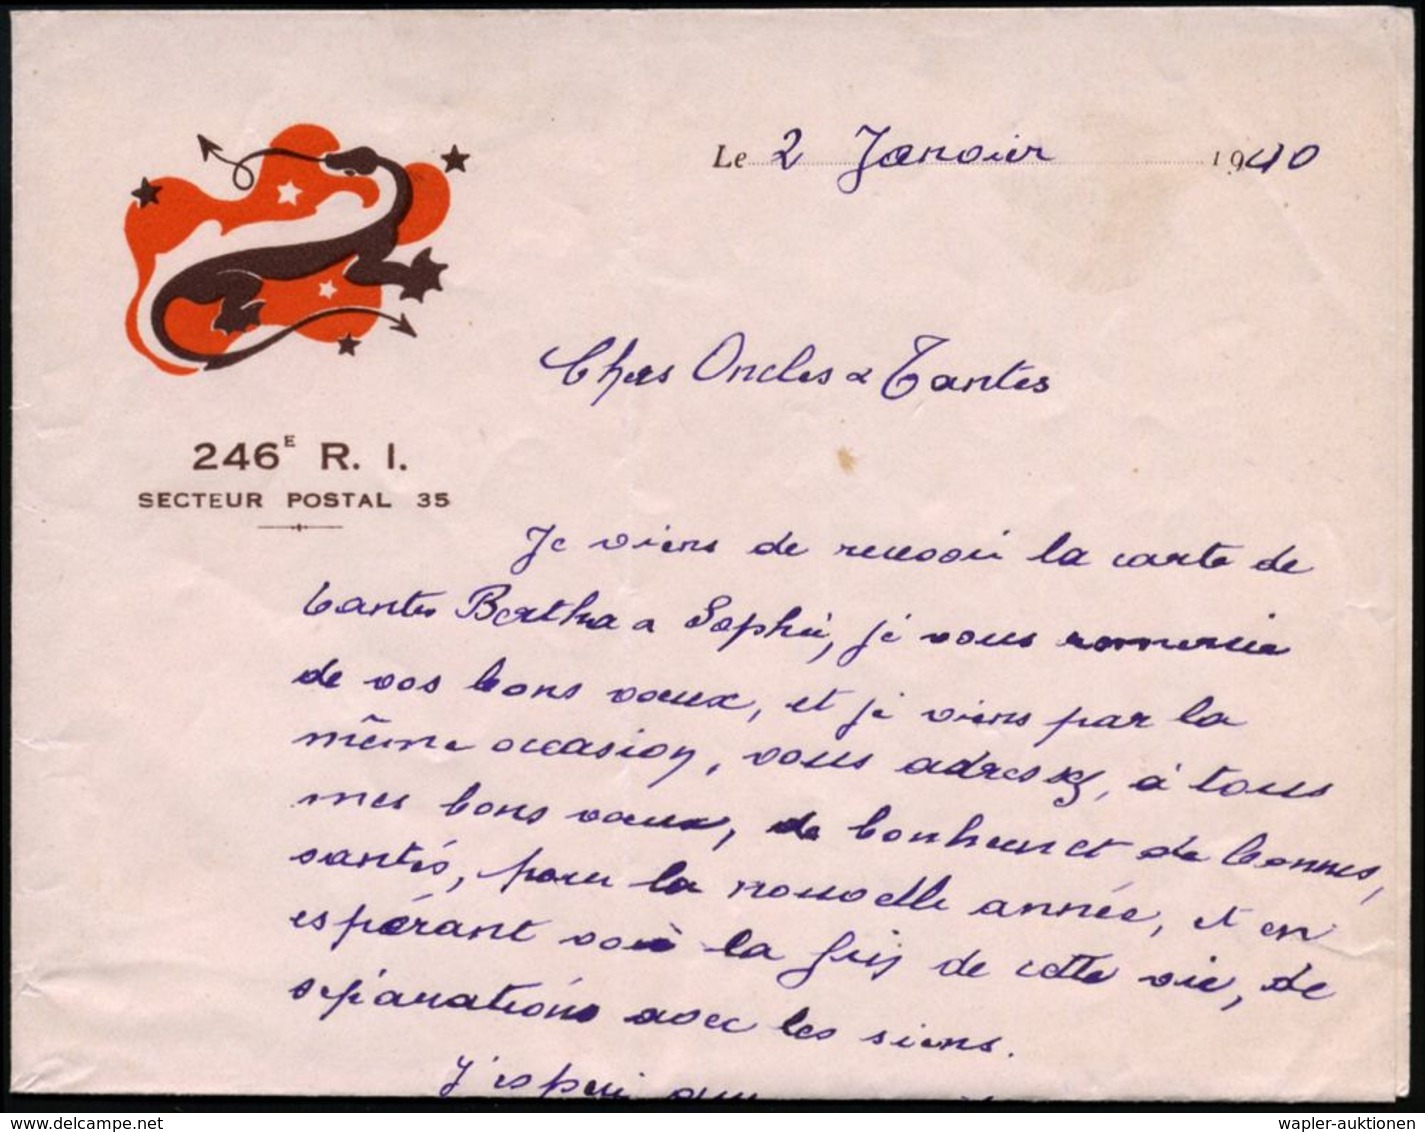 Le 2 Janvier 1940
Chers Oncles & Tantes
246E R. I.
SECTEUR POSTAL 35
Je viens de recevoir la carte de
tantes Bertha & Sophie, je vous remercie
de vos bons vœux, et je viens par la
même occasion, vous adressez, à tous
mes bons vœux, de bonheur et de bonnes,
santés, pour la nouvelle année, et en
espérant voir la fin de cette vie, de
séparations avec les siens.
J'espère que
wapler-auktionen